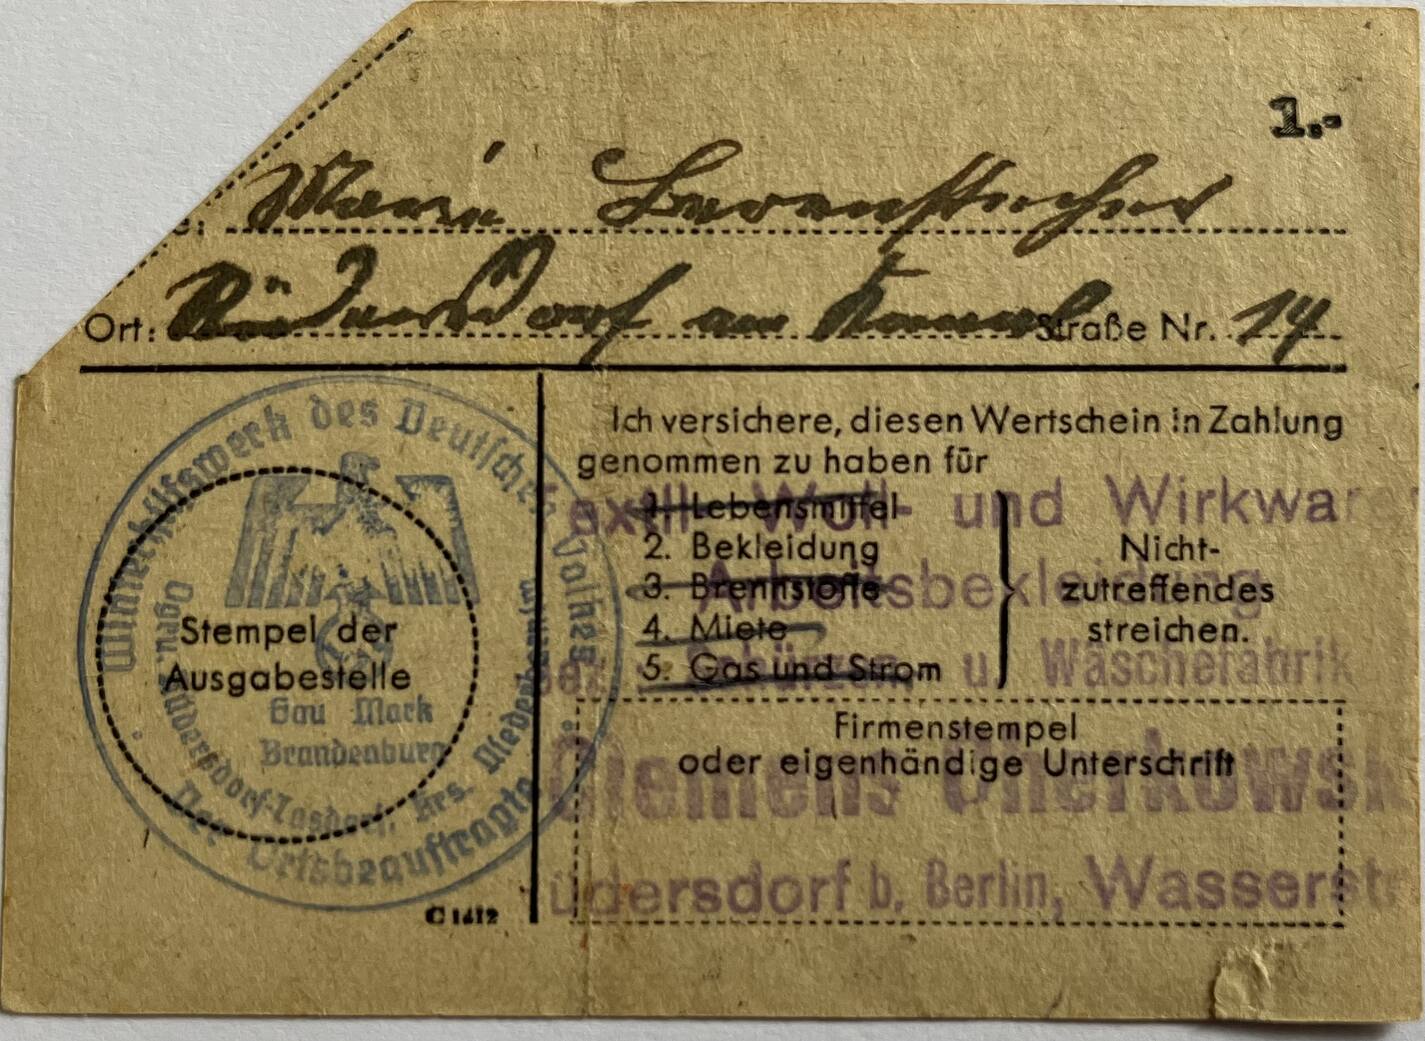 1.-
Marie
Ort: Rüdersdorf am Kanal Straße Nr. 14
Winterhilfswerk des Deutschen Volkes
Stempel der
Ausgabestelle
Gau Mark
Brandenburg
Rüdersdorf-Tasdorf, Krs. Niederbarnim
Der Ortsbeauftragte
C 1412
Ich versichere, diesen Wertschein in Zahlung
genommen zu haben für
1. Lebensmittel
2. Bekleidung
3. Brennstoffe
4. Miete
5. Gas und Strom
Nicht-
zutreffendes
streichen.
Firmenstempel
oder eigenhändige Unterschrift
Textil-, Woll- und Wirkwaren
Arbeitsbekleidung
Schürzen u. Wäschefabrik
Clemens
üdersdorf b. Berlin, Wasserst